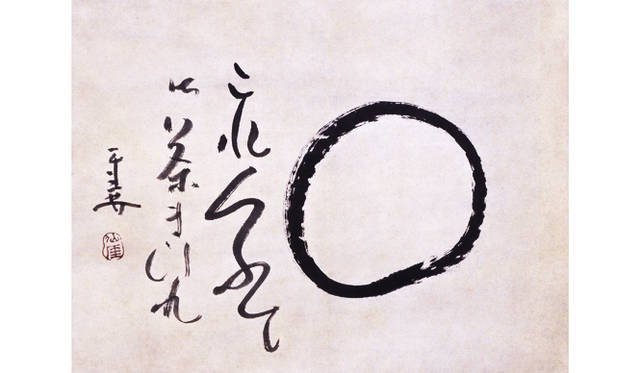 これくふて
御茶まひれ
仙厓